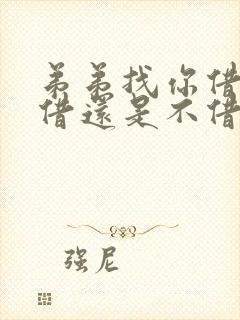 弟弟找你借
借還是不借
强尼